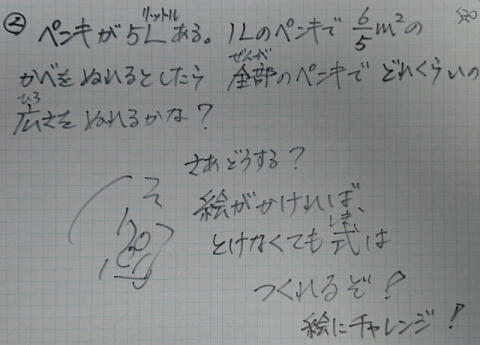 ② ペンキが5Lある。1Lのペンキで 6/5 m²の
かべをぬれるとしたら 全部のペンキで どれくらいの
広さをぬれるかな？
さあどうする？
絵がかければ、
とけなくても式は
つくれるぞ！
絵にチャレンジ！